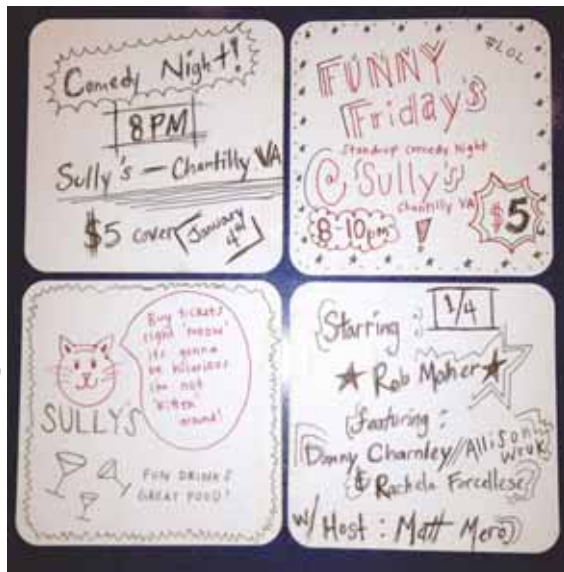 Comedy Night!
8PM
Sully's — Chantilly VA
$5 cover
January
4th
#LOL
FUNNY
Friday's
Standup comedy Night
@ Sully's
Chantilly VA
8-10pm
!
$5
Buy tickets
right 'meow'
its gonna
be hilarious
im not
'kitten'
around!
SULLY'S
FUN DRINKS
GREAT FOOD!
Starring:
1/4
Rob Maher
featuring:
Danny Charnley // Allison
Wruk
& Rachela Forcellese
w/ Host: Matt Mero